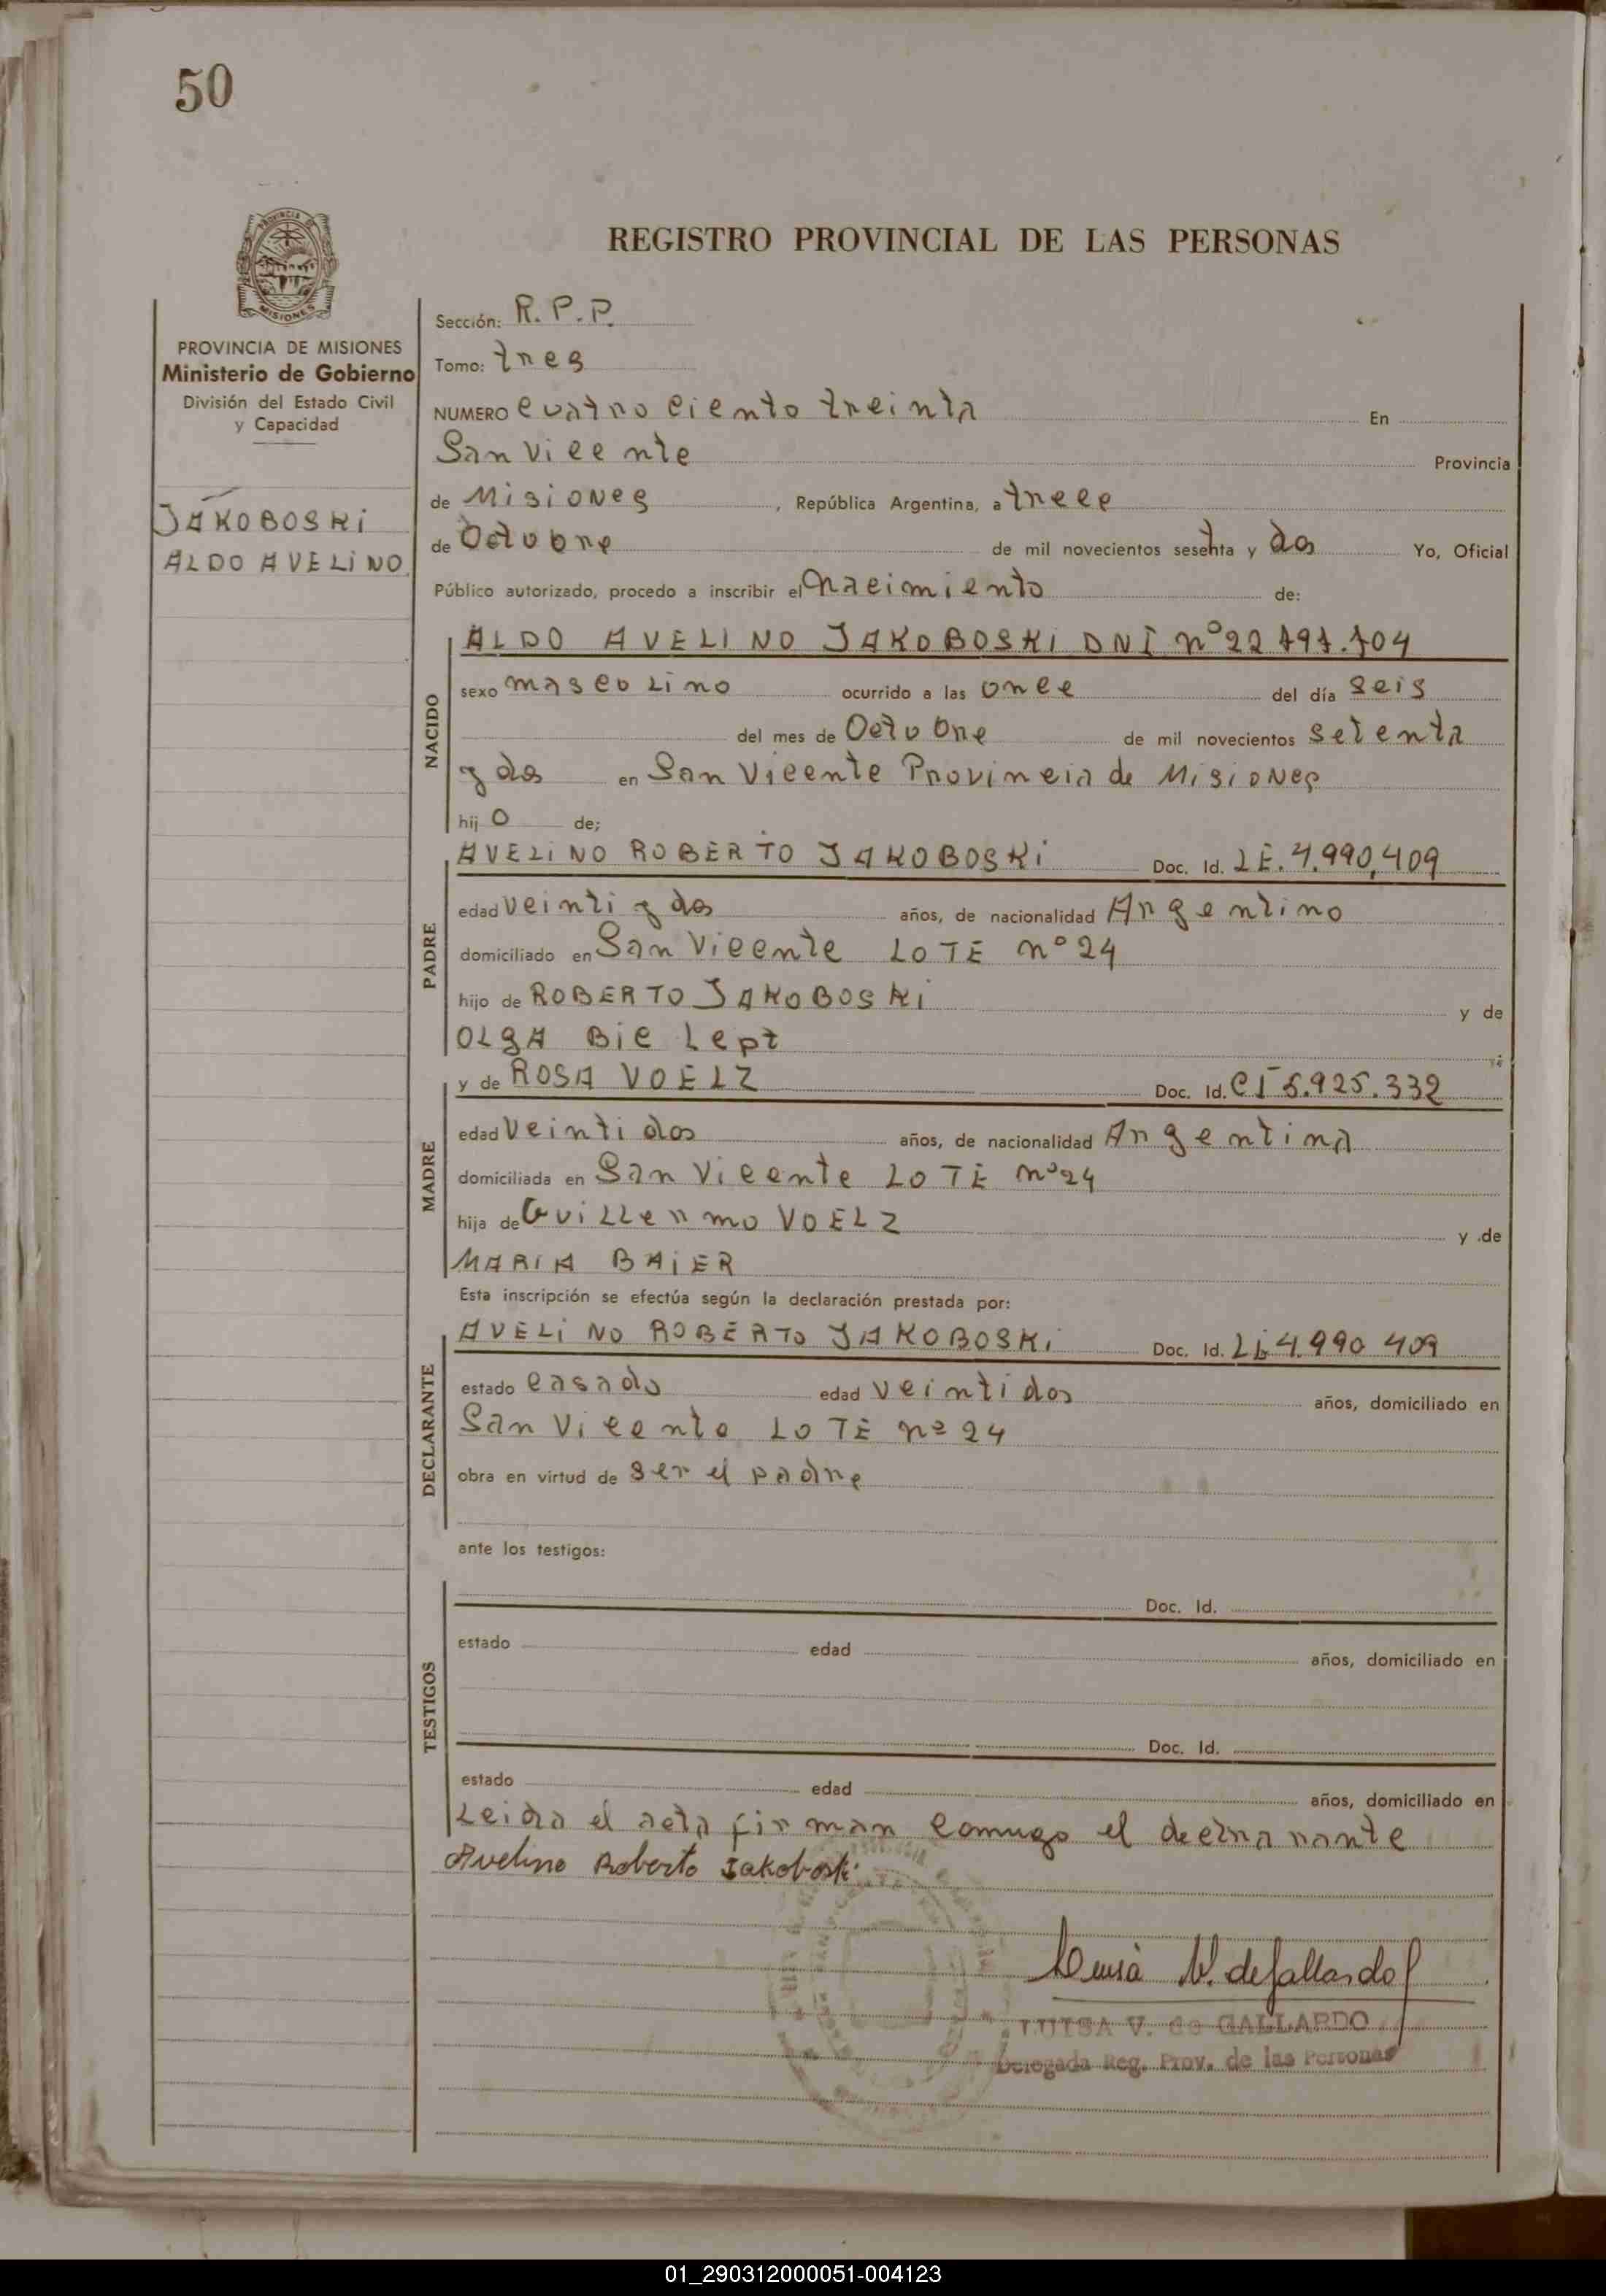 50
REGISTRO PROVINCIAL DE LAS PERSONAS
PROVINCIA DE MISIONES
MISIONES
PROVINCIA DE MISIONES
Ministerio de Gobierno
División del Estado Civil
y Capacidad
JAKOBOSKI
ALDO AVELINO
Sección: R.P.P.
Tomo: tres
NUMERO cuatro ciento treinta En
San Vicente Provincia
de Misiones, República Argentina, a trece
de Octubre de mil novecientos setenta y dos Yo, Oficial
Público autorizado, procedo a inscribir el nacimiento de:
NACIDO
ALDO AVELINO JAKOBOSKI DNI nº 22 797.704
sexo masculino ocurrido a las once del día seis
del mes de Octubre de mil novecientos setenta
y dos en San Vicente Provincia de Misiones
hijo de;
PADRE
AVELINO ROBERTO JAKOBOSKI Doc. Id. LE. 7.990,409
edad veinti y dos años, de nacionalidad Argentino
domiciliado en San Vicente LOTE nº 24
hijo de ROBERTO JAKOBOSKI y de
OLGA Bie Lept
MADRE
y de ROSA VOELZ Doc. Id. CI 5.925.332
edad veinti dos años, de nacionalidad Argentina
domiciliada en San Vicente LOTE nº 24
hija de Guillermo VOELZ y de
MARIA BAIER
Esta inscripción se efectúa según la declaración prestada por:
DECLARANTE
AVELINO ROBERTO JAKOBOSKI Doc. Id. LE 7.990 409
estado casado edad veinti dos años, domiciliado en
San Vicente LOTE nº 24
obra en virtud de ser el padre
ante los testigos:
TESTIGOS
Doc. Id.
estado edad años, domiciliado en
Doc. Id.
estado edad años, domiciliado en
Leida el acta firman comugo el declnarante
Avelino Roberto Jakoboski
Luisa V. de Gallardo
LUISA V. de GALLARDO
Delegada Reg. Prov. de las Personas
01_290312000051-004123